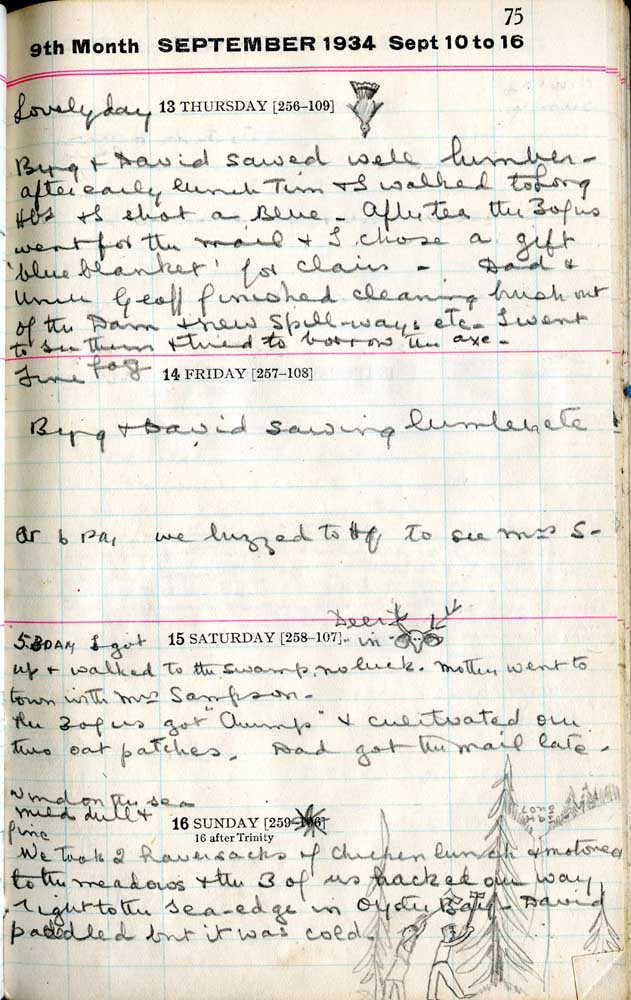 75
9th Month SEPTEMBER 1934 Sept 10 to 16
Lovely day 13 THURSDAY [256–109]
Byng & David sawed well lumber -
after early lunch Tim & I walked to Long
& I shot a Blue - After tea the 3 of us
went for the mail & I chose a gift
'blue blanket' for Clairs - Dad &
Uncle Geoff finished cleaning brush out
of the Dam & new spill-ways etc - I went
to see them & tried to borrow the axe -
Fine fog 14 FRIDAY [257–108]
Byng & David sawing lumber etc
At 6 PM we buzzed to HQ to see Mrs S -
Deer
5.30 AM I got 15 SATURDAY [258–107] in
up & walked to the swamp, no luck. Mother went to
town with Mrs Sampson -
The 3 of us got "Chump" & cultivated our
two oat patches. Dad got the mail late -
Wind on the sea
mild dull &
fine 16 SUNDAY [259–106]
16 after Trinity
We took 2 haversacks of chicken lunch & motored
to the meadows & the 3 of us packed our way
right to the sea-edge in Oyster Bay - David
paddled but it was cold.
LONG